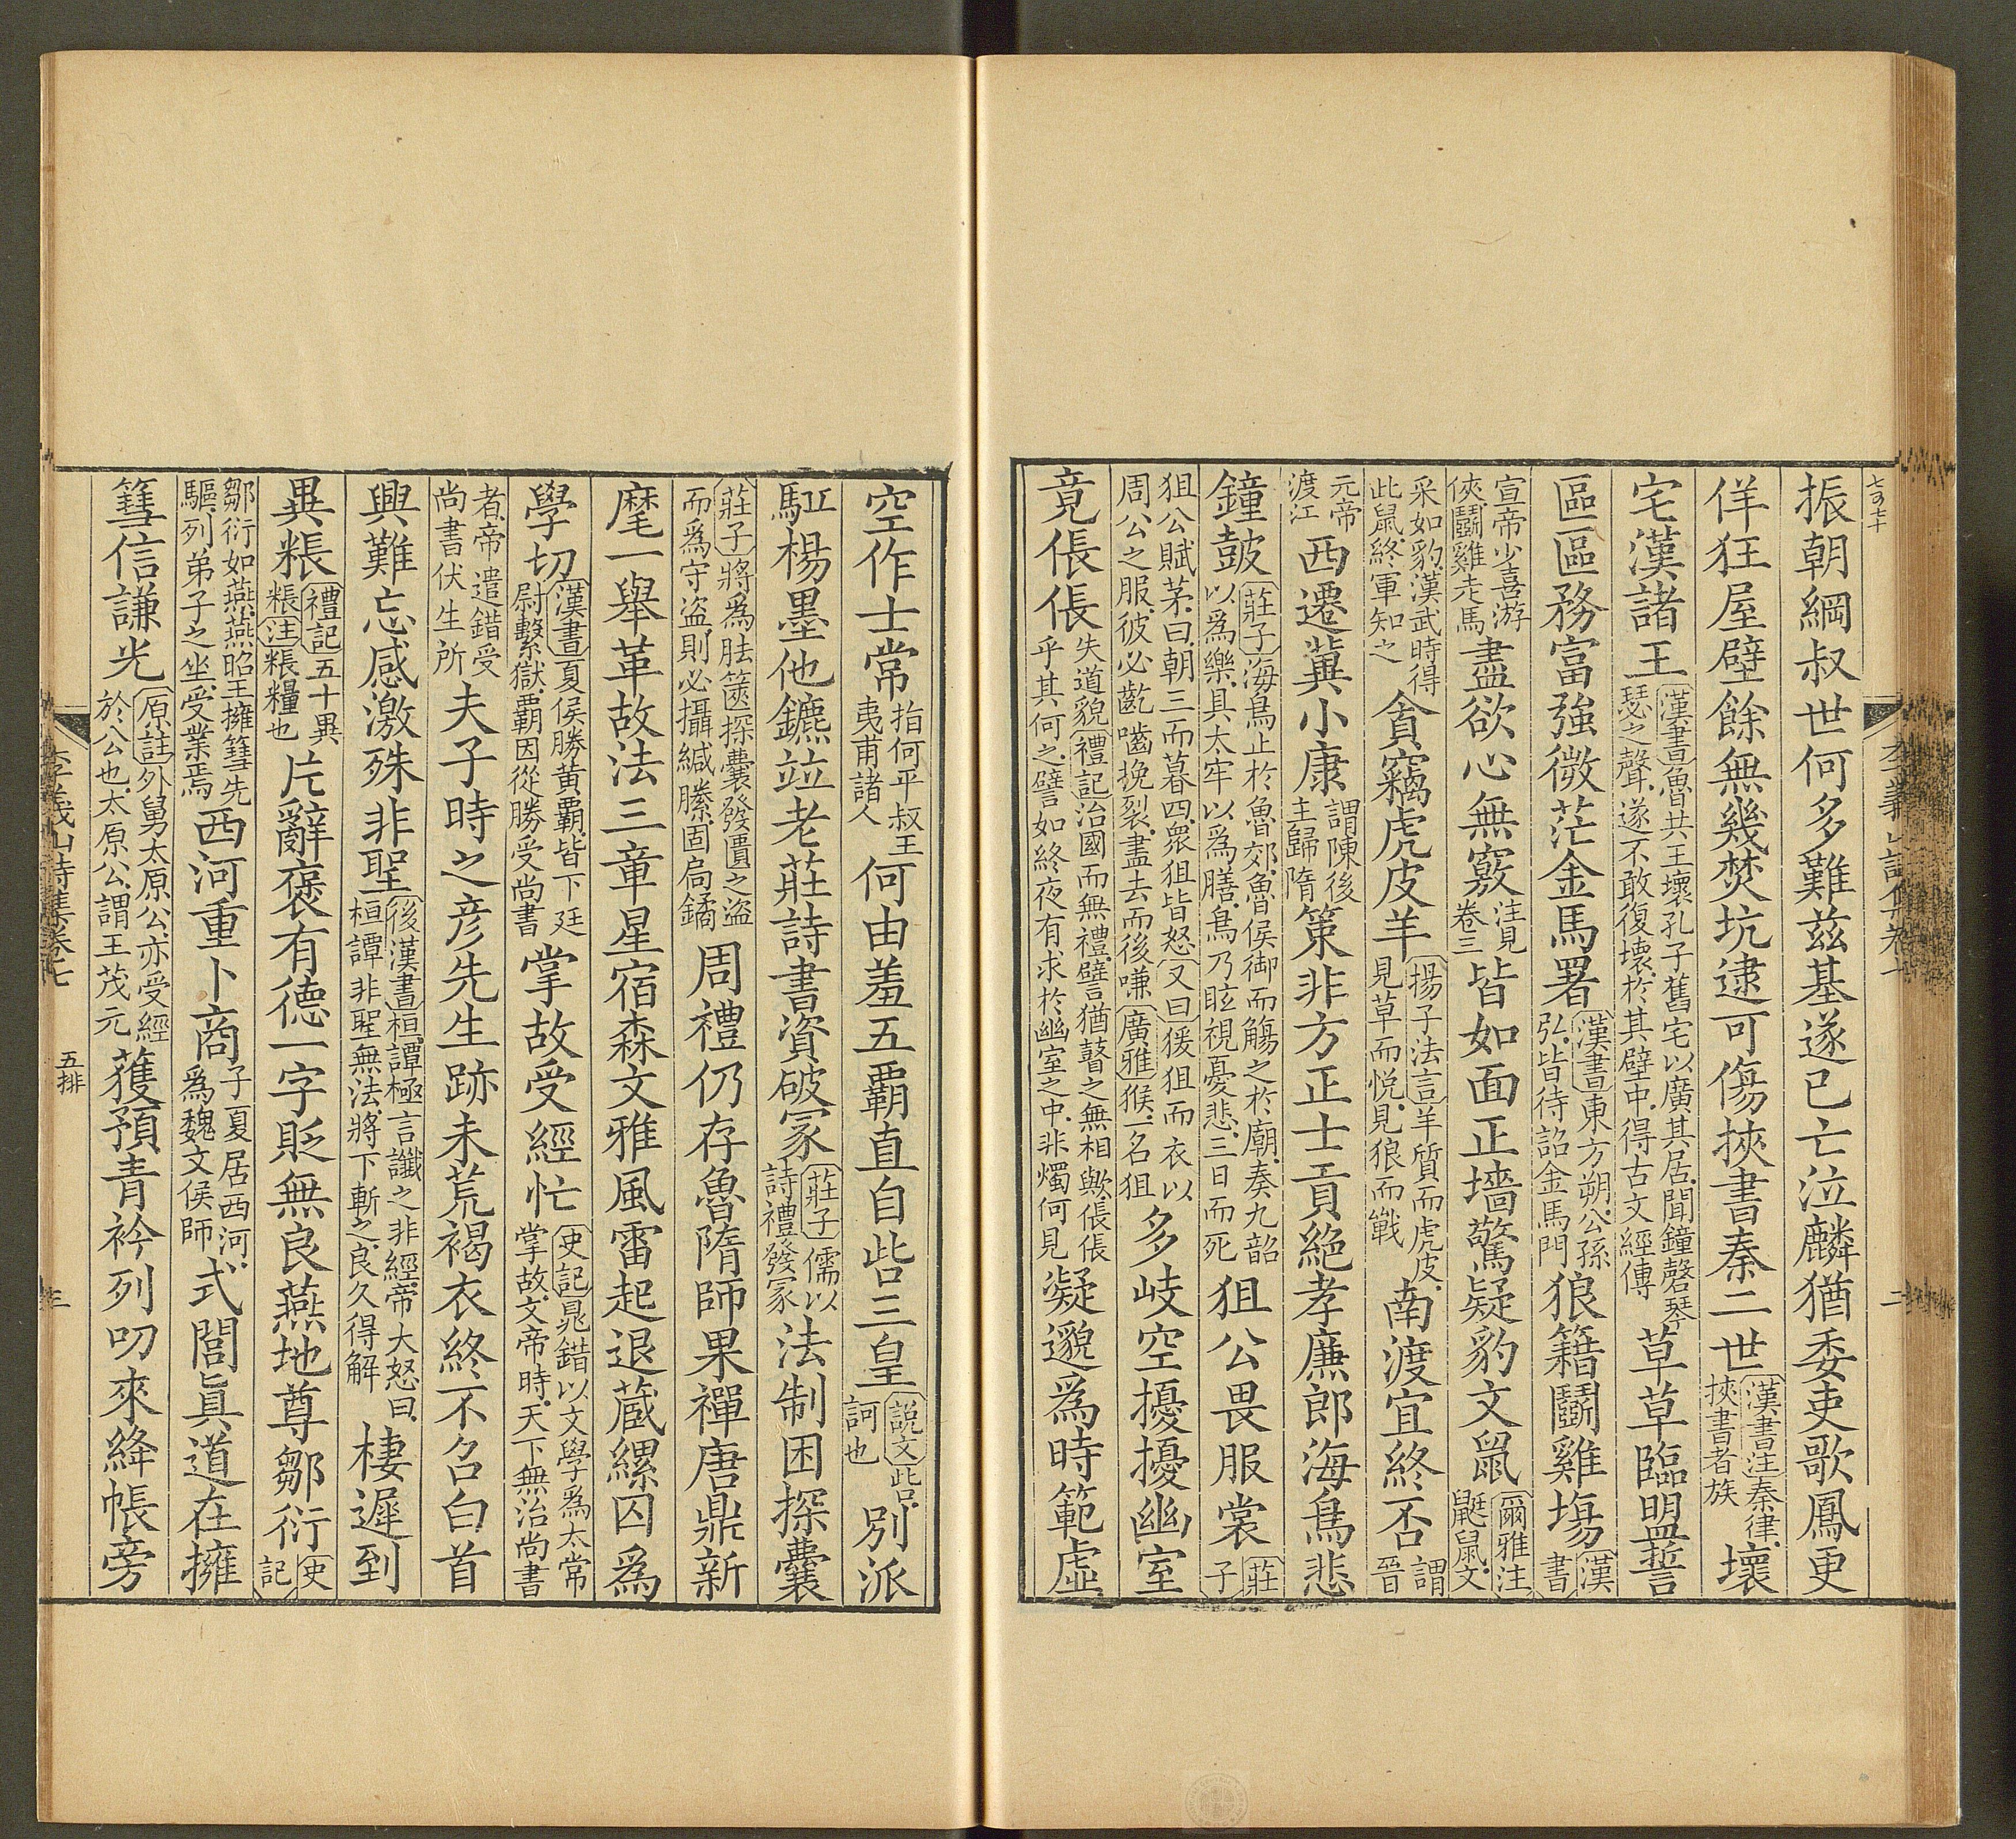 振朝綱叔世何多難茲基遂已亡泣麟猶委吏歌鳳更
佯狂屋壁餘無幾焚坑逮可傷挾書秦二世漢書注秦律挾書者族壞
宅漢諸王漢書魯共王壞孔子舊宅以廣其居聞鐘磬琴瑟之聲遂不敢復壞於其壁中得古文經傳草草臨盟誓
區區務富強微茫金馬署漢書東方朔公孫弘皆待詔金馬門狼籍鬭雞場漢書
宣帝少喜游俠鬭雞走馬盡欲心無竅注見卷三皆如面正墻驚疑豹文鼠爾雅注鼮鼠文
采如豹漢武時得此鼠終軍知之貪竊虎皮羊揚子法言羊質而虎皮見草而悅見狼而戰南渡宜終否謂晉
元帝渡江西遷冀小康謂陳後主歸隋策非方正士貢絕孝廉郎海鳥悲
鐘鼓莊子海鳥止於魯郊魯侯御而觴之於廟奏九韶以爲樂具太牢以爲膳鳥乃眩視憂悲三日而死狙公畏服裳莊子
狙公賦茅曰朝三而暮四衆狙皆怒又曰猨狙而衣以周公之服彼必齕嚙挽裂盡去而後嗛廣雅猴一名狙多岐空擾擾幽室
竟倀倀失道貌禮記治國而無禮譬猶瞽之無相與倀倀乎其何之譬如終夜有求於幽室之中非燭何見凝邈爲時範虛
李義山詩集卷七
二
空作士常指何平叔王夷甫諸人何由羞五霸直自呰三皇說文呰訶也別派
駈楊墨他鑣竝老莊詩書資破冢莊子儒以詩禮發冢法制困探囊
莊子將爲胠篋探囊發匱之盜而爲守盜則必攝緘縢固扃鐍周禮仍存魯隋師果禪唐鼎新
麾一舉革故法三章星宿森文雅風雷起退藏縲囚爲
學切漢書夏侯勝黃霸皆下廷尉繫獄霸因從勝受尚書掌故受經忙史記晁錯以文學爲太常掌故文帝時天下無治尚書
者帝遣錯受尚書伏生所夫子時之彥先生跡未荒褐衣終不召白首
興難忘感激殊非聖後漢書桓譚極言讖之非經帝大怒曰桓譚非聖無法將下斬之良久得解棲遲到
異粻禮記五十異粻注粻糧也片辭褒有德一字貶無良燕地尊鄒衍史記
鄒衍如燕燕昭王擁篲先驅列弟子之坐受業焉西河重卜商子夏居西河爲魏文侯師式閭眞道在擁
篲信謙光原註外舅太原公亦受經於公也太原公謂王茂元獲預青衿列叨來絳帳旁
李義山詩集卷七
五排
三